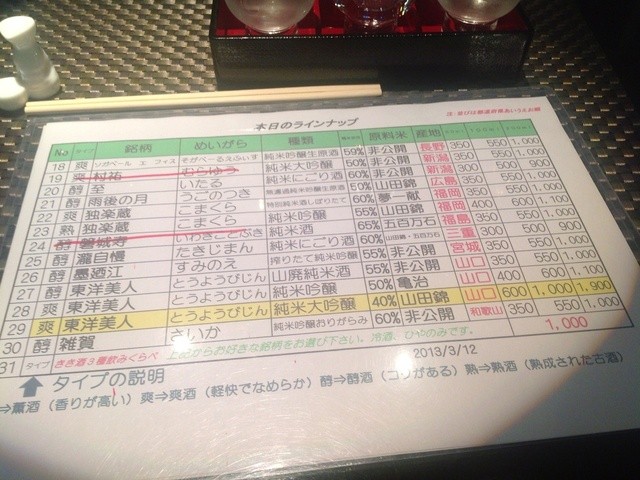 本日のラインナップ
No タイプ 銘柄 めいがら 種類 原料米 産地
18 爽 ソガペール エ フィス そがぺーるえふぃす 純米吟醸生原酒 59% 非公開 長野 350 550 1,000
19 爽 村祐 むらゆう 純米大吟醸 50% 非公開 新潟 350 550 1,000
20 醇 至 いたる 純米にごり酒 60% 非公開 新潟 300
21 醇 雨後の月 うごのつき 無濾過純米吟醸生原酒 50% 山田錦 広島 350 550 1,000
22 爽 独楽蔵 こまぐら 60% 夢一献 福岡 350 550
23 熟 独楽蔵 こまぐら 純米吟醸 55% 山田錦 福岡 400 600
24 醇 磐城寿 いわきことぶき 純米酒 五百万石 福島 350
25 醇 瀧自慢 たきじまん 純米にごり酒 60% 山田錦・五百万石 三重 300 500
26 醇 墨廼江 すみのえ 搾りたて純米吟醸 55% 非公開 宮城 350 550 1,000
27 醇 東洋美人 とうようびじん 山廃純米酒 55% 非公開 山口 350
28 醇 東洋美人 とうようびじん 50% 亀治 山口 400 600 1,100
29 爽 東洋美人 とうようびじん 純米大吟醸 40% 山田錦 山口 600 1,000 1,900
30 醇 雑賀 さいか 純米吟醸おりがらみ 60% 非公開 和歌山 350 550 1,000
31 タイプ きき酒3種飲みくらべ 上記からお好きな銘柄をお選び下さい。冷酒、ひやのみです。 1,000
2013/3/12
タイプの説明
⇒薫酒(香りが高い) 爽⇒爽酒(軽快でなめらか) 醇⇒醇酒(コクがある) 熟⇒熟酒(熟成された古酒)